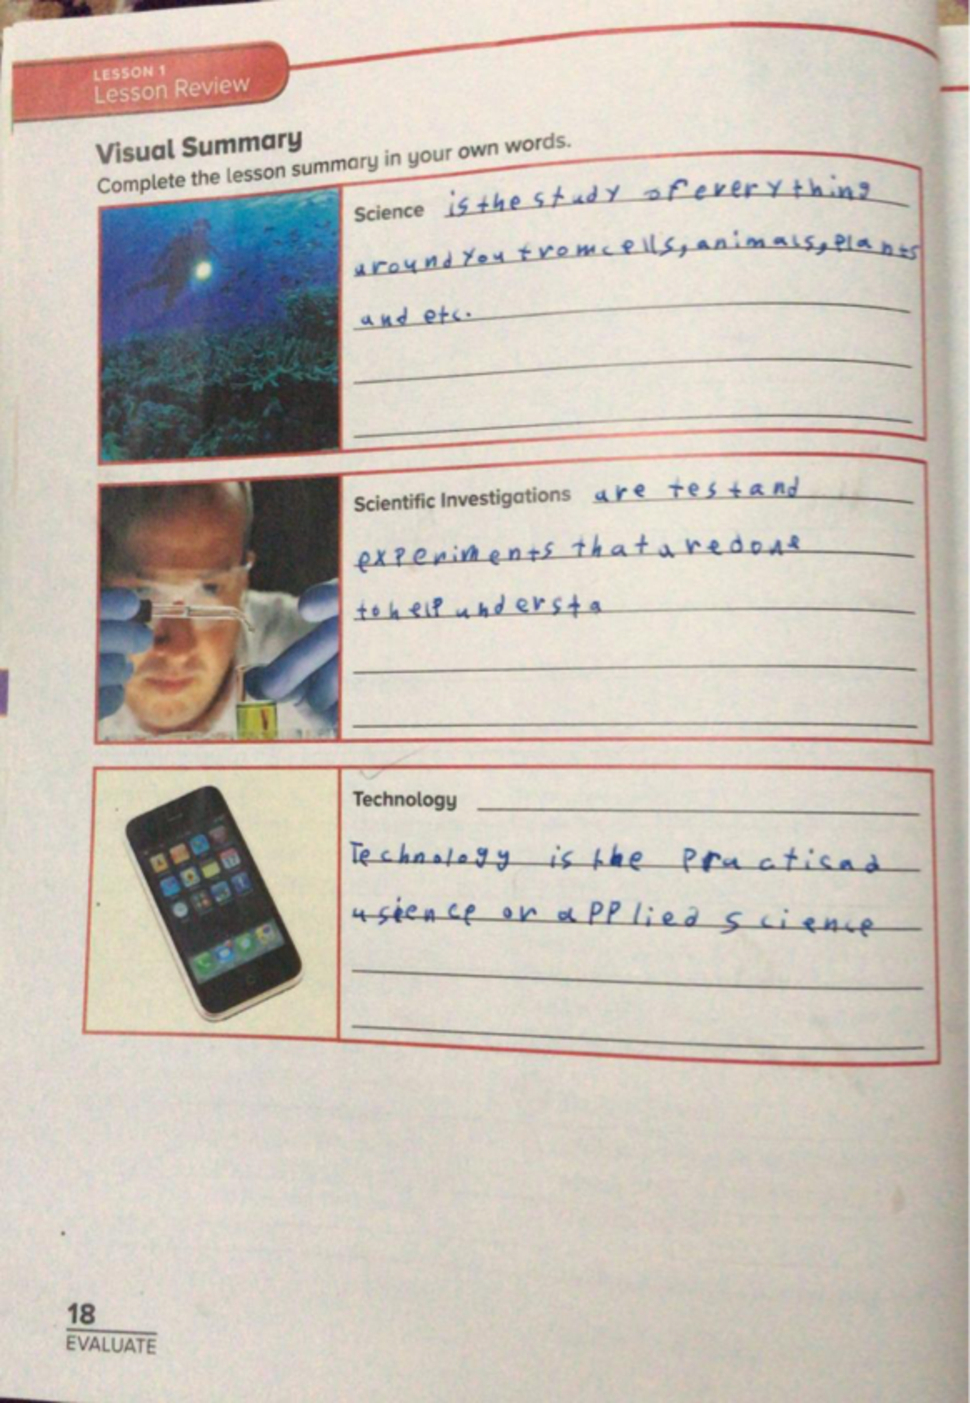 LESSON 1
Lesson Review
Visual Summary
Complete the lesson summary in your own words.
Science is the study of everything
around you from cells, animals, plants
and etc.
Scientific Investigations are test and
experiments that are done
to help understa
Technology
Technology is the practical
usience or applied science
18
EVALUATE